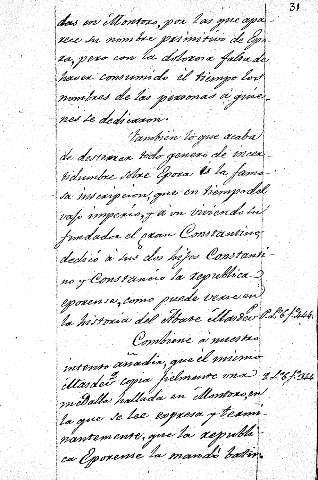 31
das en Montoro, por las que apa-
rece su nombre primitivo de Epo-
ra, pero con la dolorosa falta de
haver consumido el tiempo los
nombres de las personas á quie-
nes se dedicaron.
Tambien lo que acaba
de desterrar todo genero de incer-
tidumbre sobre Epora es la famo-
sa inscripcion, que en tiempo del
vajo imperio, y aun viviendo su
fundador el gran Constantino,
dedicó a sus dos hijos Constanti-
no y Constancio la republica
eporense, como puede verse en
la historia del Abate Masdeu
Combiene á nuestro
intento añadir, que el mismo
Masdeu copia fielmente una
medalla hallada en Montoro, en
la que se lee expresa y termi-
nantemente, que la republi-
ca Eporense la mandó batir